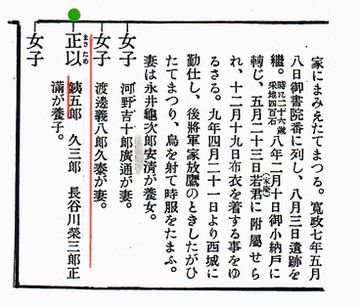 家にまみえたてまつる。寛政七年五月
八日御書院番に列し、八月三日遺跡を
繼。時に二十六歳 采地四百石 八年二月十日御小納戸に
轉じ、五月二十三日若君(家慶)に附屬せら
れ、十二月十九日布衣を着する事をゆ
るさる。九年四月二十一日より西城に
勤仕し、後將軍家放鷹のときしたがひ
たてまつり、鳥を射て時服をたまふ。
妻は永井龜次郎安清が養女。
女子 河野吉十郎廣通が妻。
女子 渡邊義八郎久泰が妻。
まさため
正以 銕五郎 久三郎 長谷川榮三郎正
滿が養子。
女子